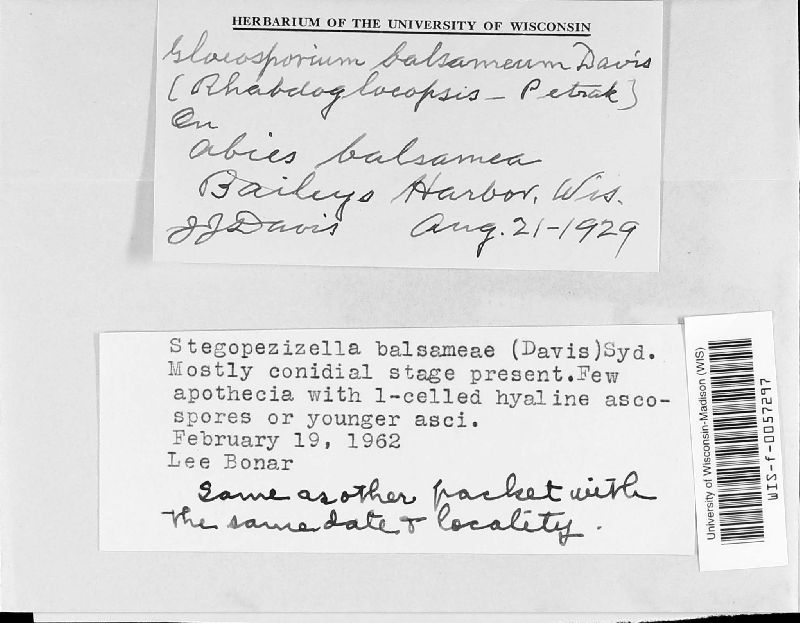 HERBARIUM OF THE UNIVERSITY OF WISCONSIN
Gloeosporium balsameum Davis
[Rhabdogloeopsis - Petrak]
On
abies balsamea
Baileys Harbor, Wis.
JJDavis Aug. 21-1929
Stegopezizella balsameae (Davis)Syd.
Mostly conidial stage present.Few
apothecia with 1-celled hyaline asco-
spores or younger asci.
February 19, 1962
Lee Bonar
Same as other packet with
the same date & locality.
University of Wisconsin-Madison (WIS)
WIS-f-0057297